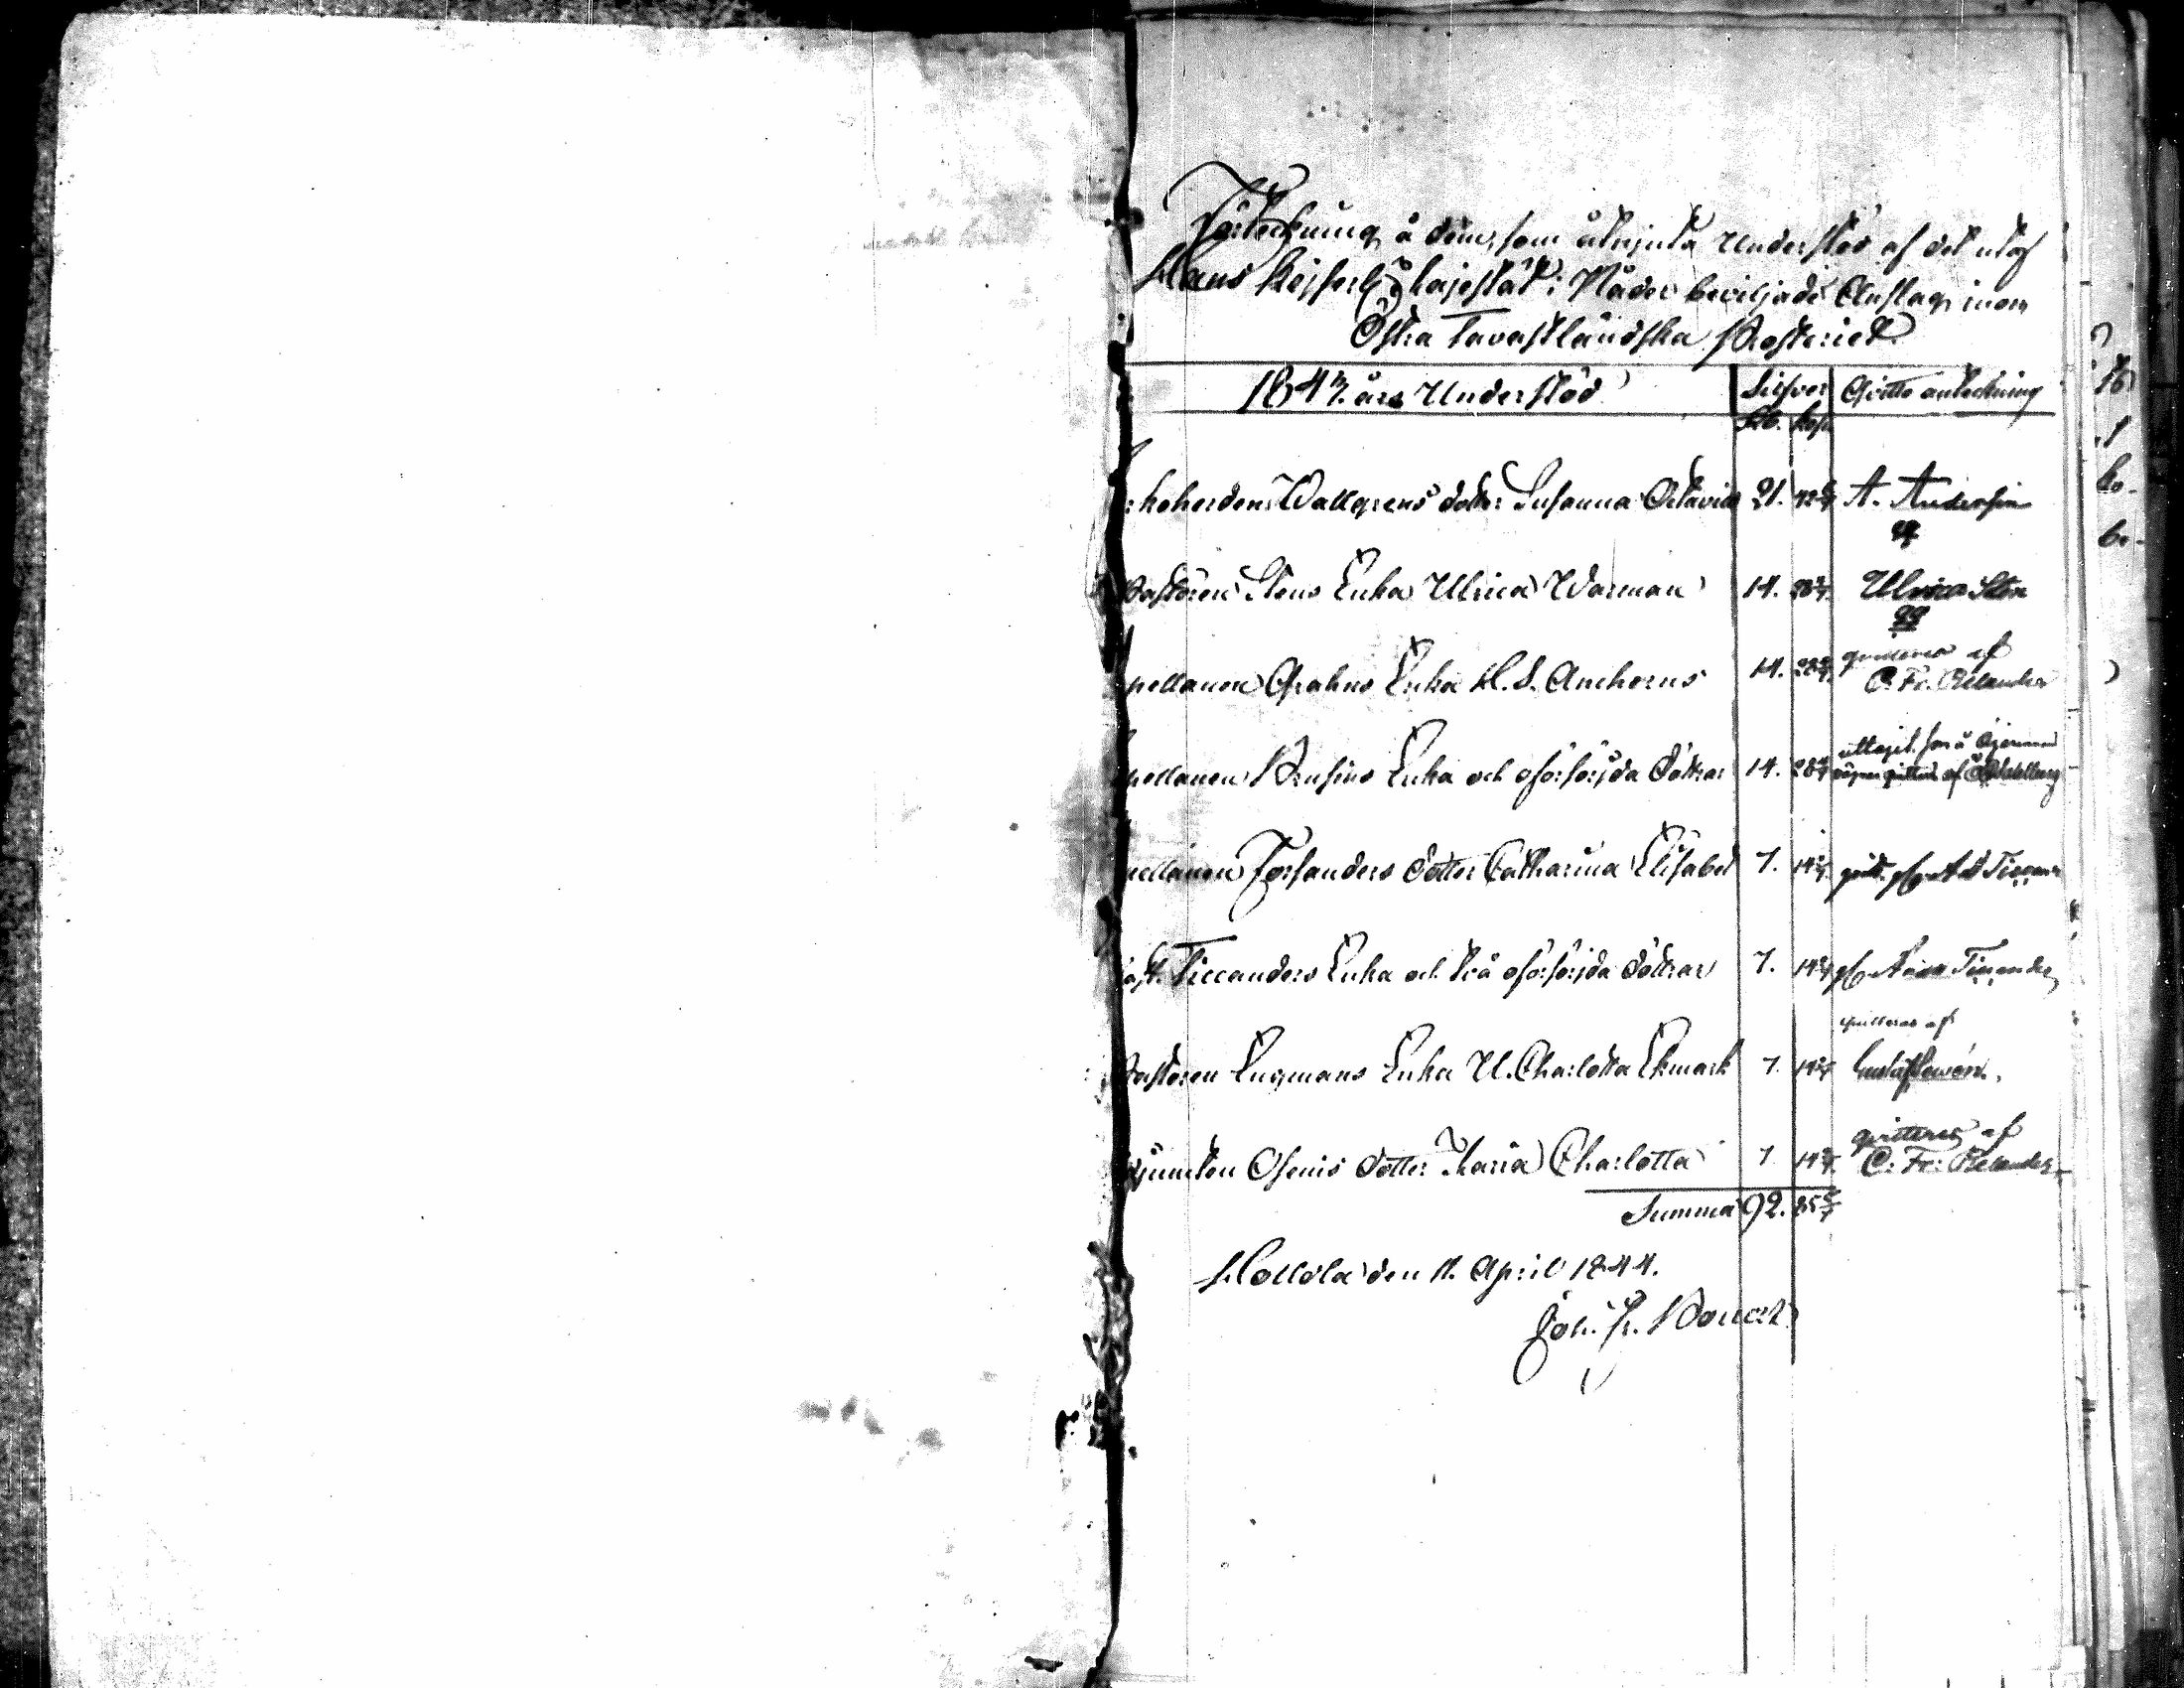 Förteckning å dem, som åtnjuta Understöd af det utaf
Hans Kejserl. Majestät i Nåder beviljade Anslag inom
Östra Tavastländska Prosteriet
1843 års Understöd Silfver Qvitto anteckning
Rb. Kop.
koherden Wallgrens dotter Susanna Octavia 21. 42 6/7 A. Andersin
Pastoren Stens Enka Ulrica Warman 14. 28 4/7 Ulrica Sten
pellanen Grahns Enka H. S. Anchorus 14. 28 4/7 qvitteras af
C. Fr. Relander
pellanen Krusius Enka och oförsörjda döttrar 14. 28 4/7 uttaget
pellanen Forsanders dotter Catharina Elisabet 7. 14 2/7 qvitt.
Past. Ticcanders Enka och två oförsörjda döttrar 7. 14 2/7
qvitteras af
Pastoren Engmans Enka U. Charlotta Ekmark 7. 14 2/7 Gustaf Lewén.
djuncten Osenii dotter Maria Charlotta 7. 14 2/7 qvitteras af
C: Fr: Relander
Summa 92. 85 5/7
Hollola den 11. April 1844.
Joh. Fr.